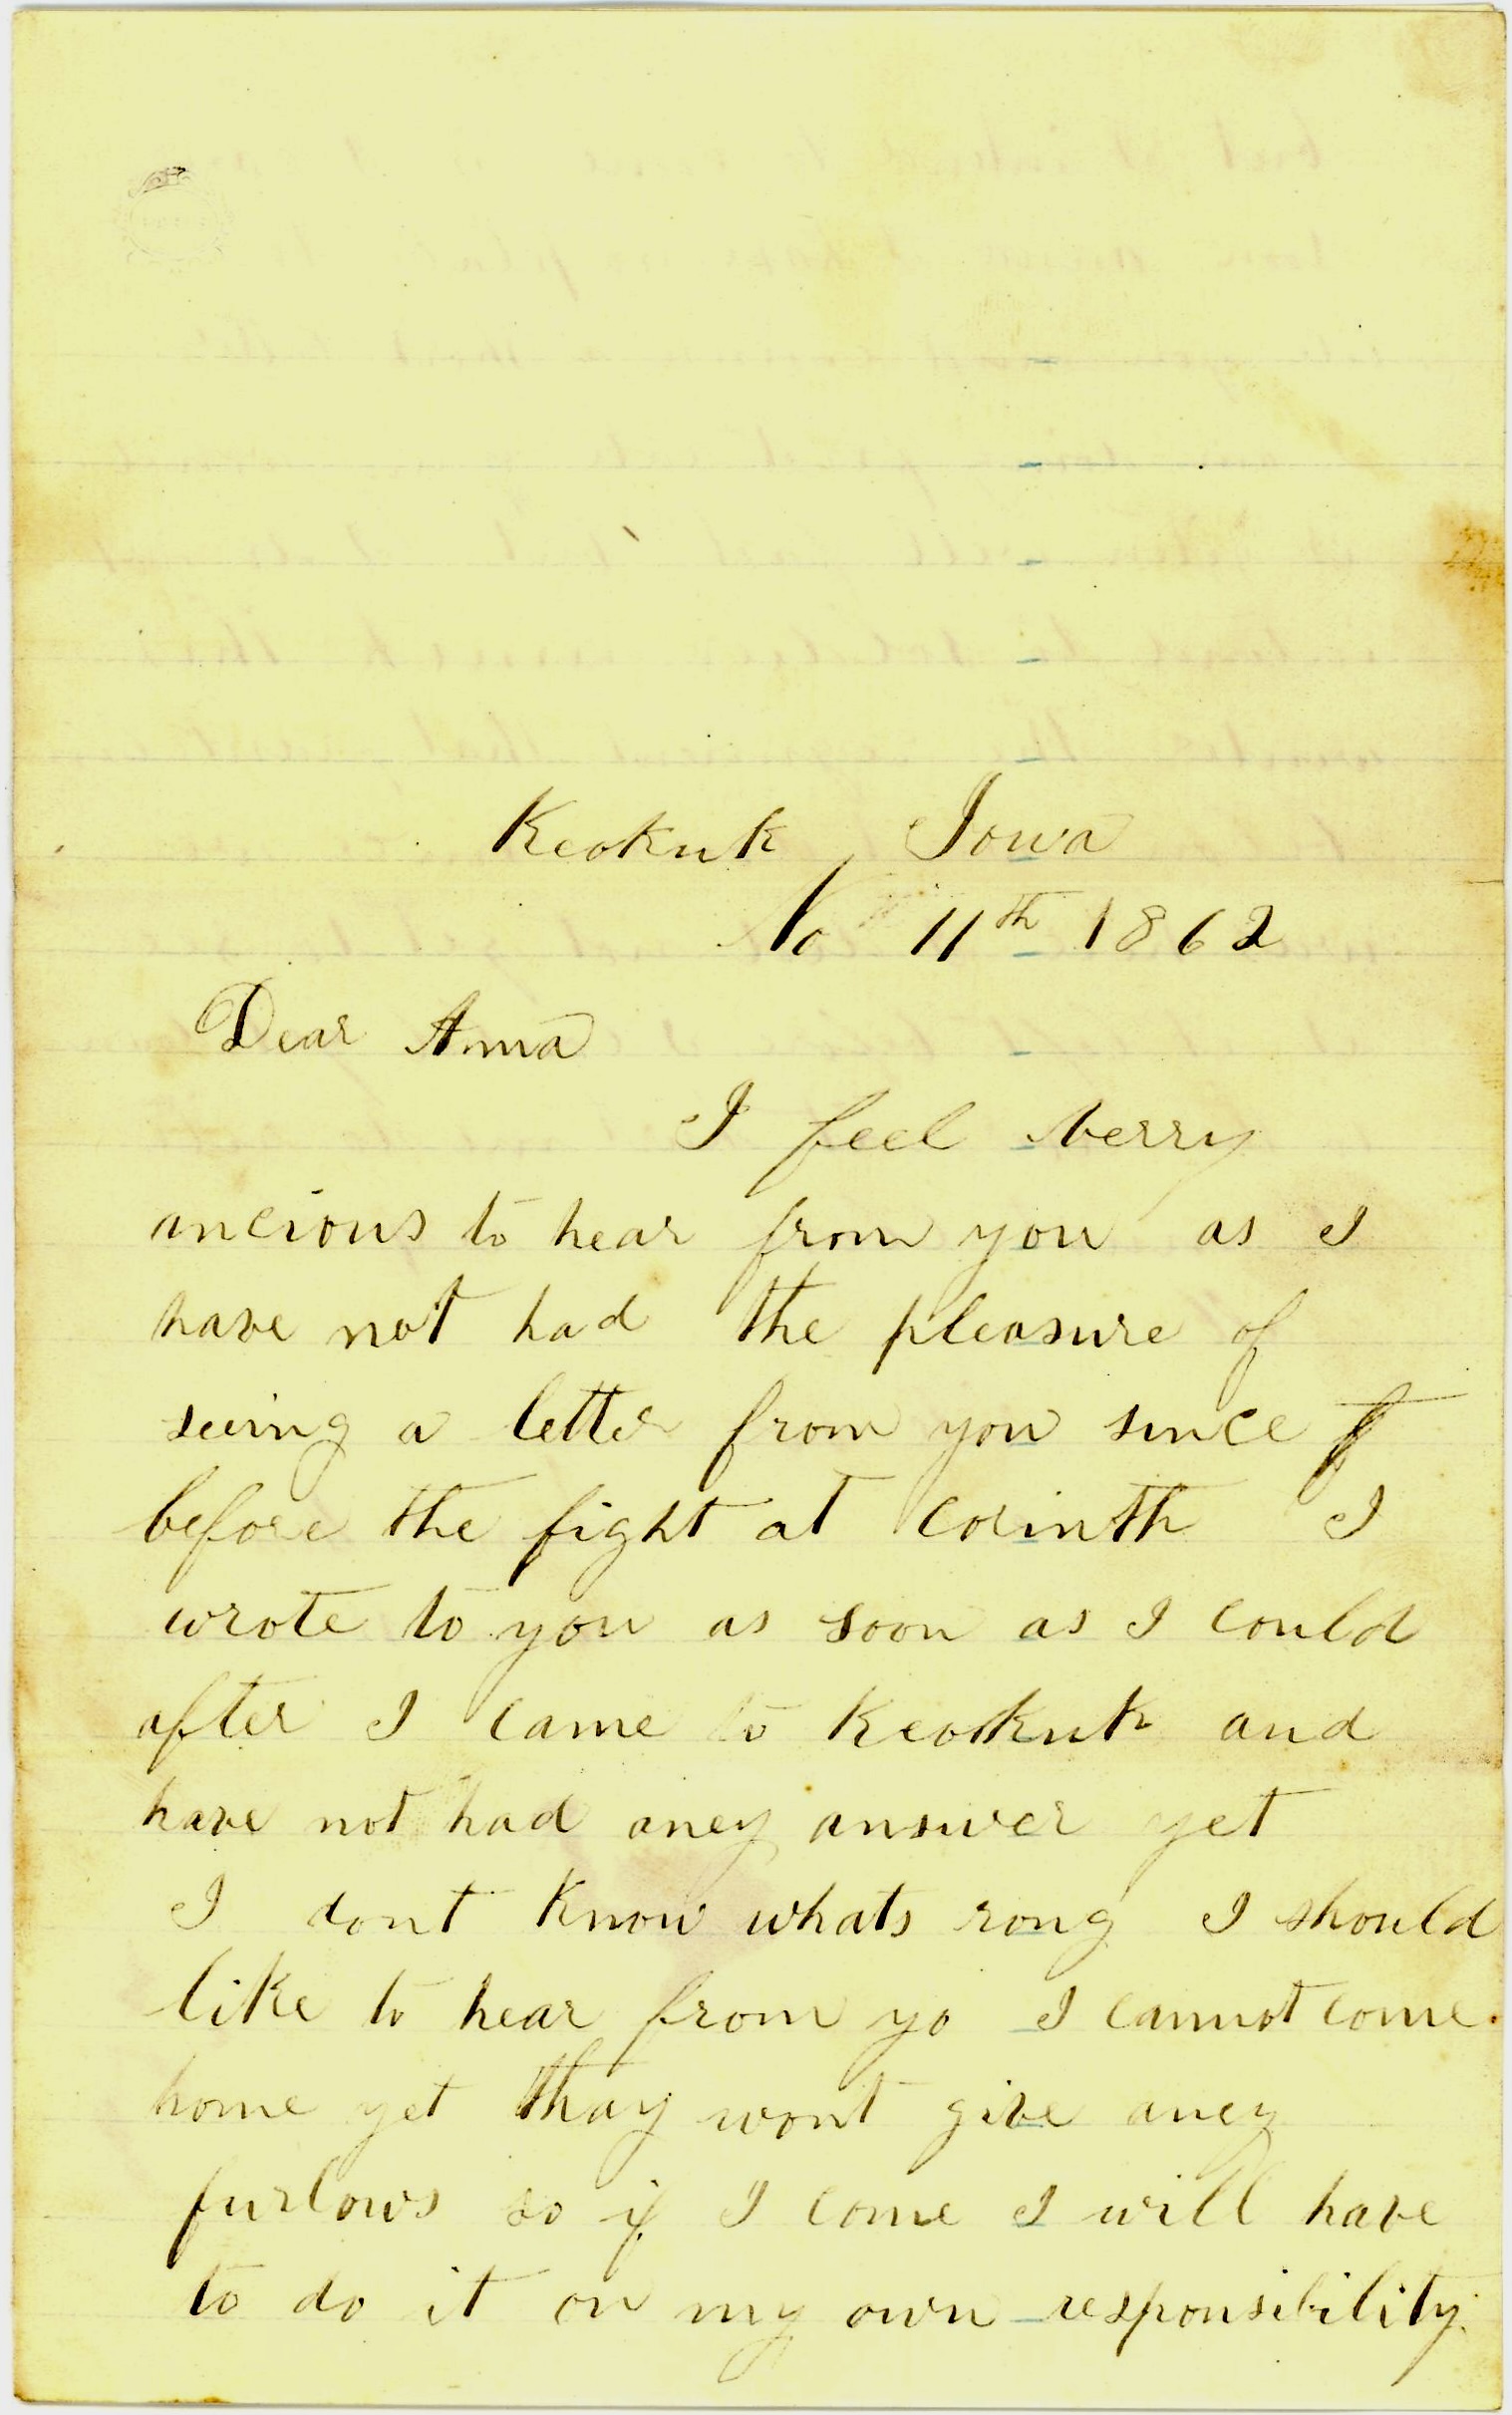 Keokuk, Iowa
No 11th 1862
Dear Anna
I feel verry
ancious to hear from you as I
have not had the pleasure of
seeing a letter from you since
before the fight at Corinth I
wrote to you as soon as I could
after I came to Keokuk and
have not had aney answer yet
I dont know whats rong I should
like to hear from yo I cannot come
home yet thay wont give aney
furlows so if I come I will have
to do it on my own responsibility